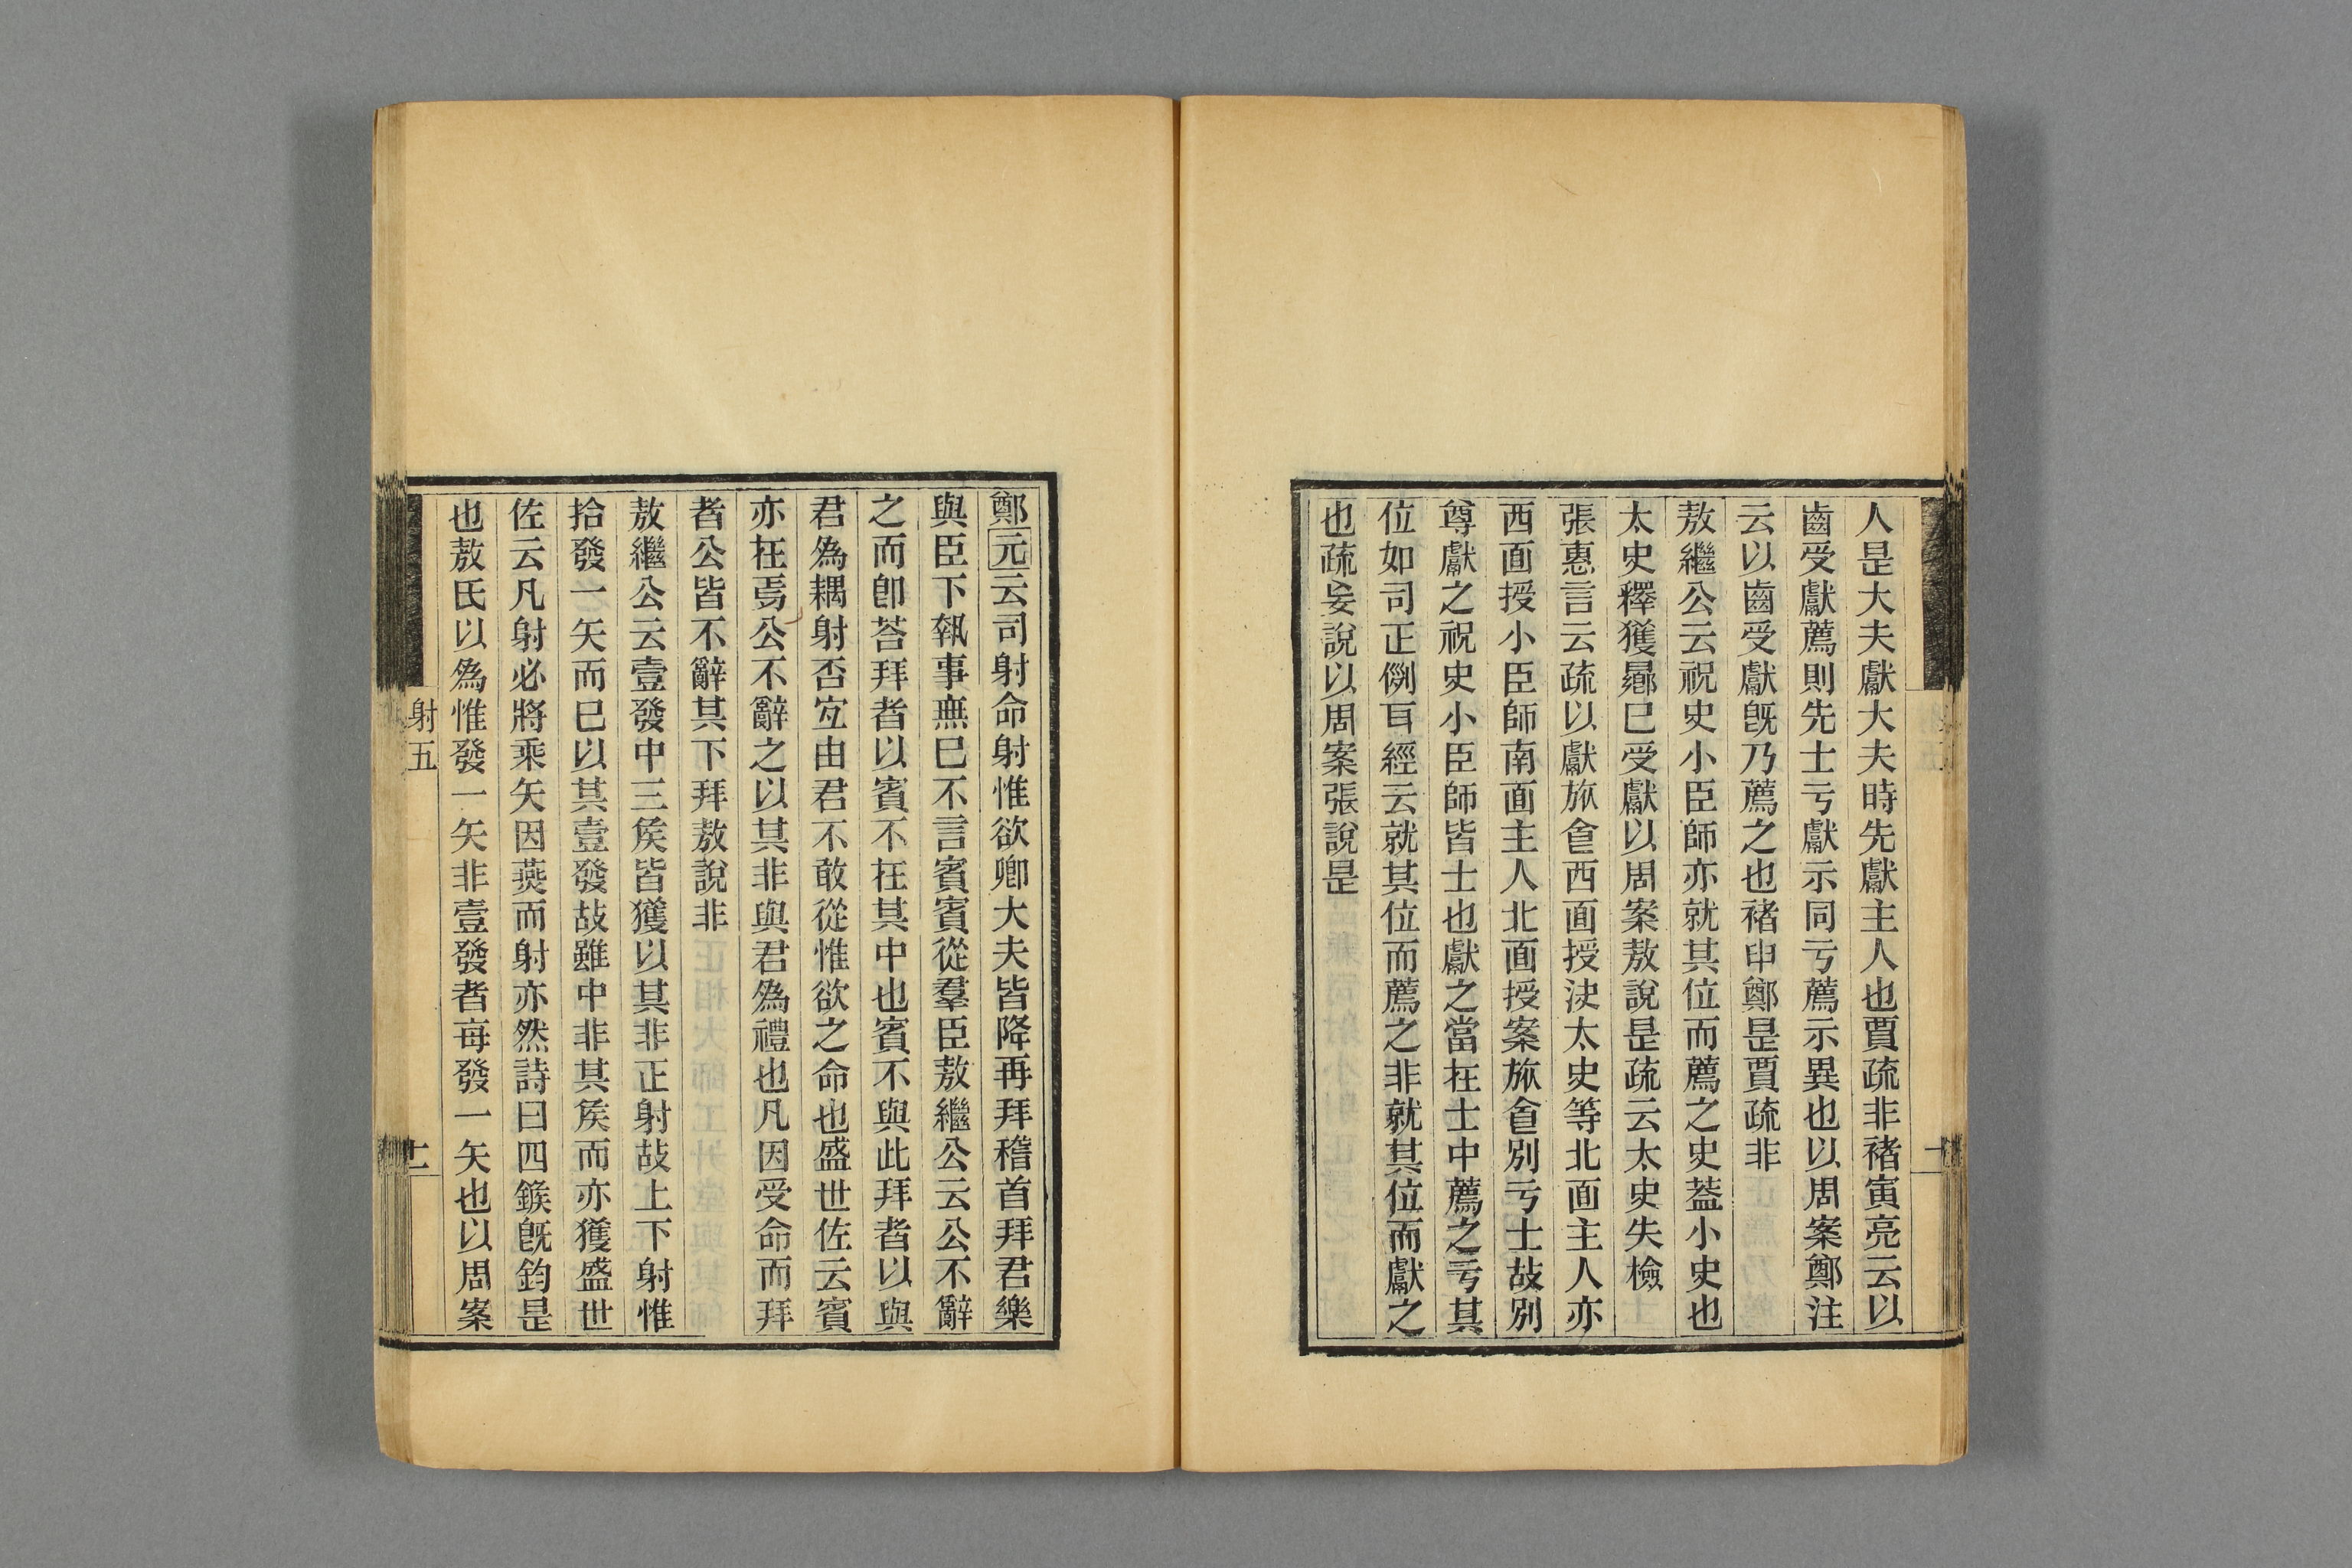 人是大夫獻大夫時先獻主人也賈疏非褚寅亮云以
齒受獻薦則先士亏獻示同亏薦示異也以周案鄭注
云以齒受獻旣乃薦之也褚申鄭是賈疏非
敖繼公云祝史小臣師亦就其位而薦之史葢小史也
太史釋獲曏巳受獻以周案敖說是疏云太史失檢
張惠言云疏以獻旅㑹西面授泱太史等北面主人亦
西面授小臣師南面主人北面授案旅㑹別亏士故別
尊獻之祝史小臣師皆士也獻之當在士中薦之亏其
位如司正例耳經云就其位而薦之非就其位而獻之
也疏妄說以周案張說是
鄭元云司射命射惟欲卿大夫皆降再拜稽首拜君樂
與臣下執事無巳不言賓賓從羣臣敖繼公云公不辭
之而卽荅拜者以賓不在其中也賓不與此拜者以與
君爲耦射否宐由君不敢從惟欲之命也盛世佐云賓
亦在焉公不辭之以其非與君爲禮也凡因受命而拜
者公皆不辭其下拜敖說非
敖繼公云壹發中三矦皆獲以其非正射故上下射惟
拾發一矢而巳以其壹發故雖中非其矦而亦獲盛世
佐云凡射必將乘矢因燕而射亦然詩曰四鍭旣鈞是
也敖氏以爲惟發一矢非壹發者每發一矢也以周案
射五